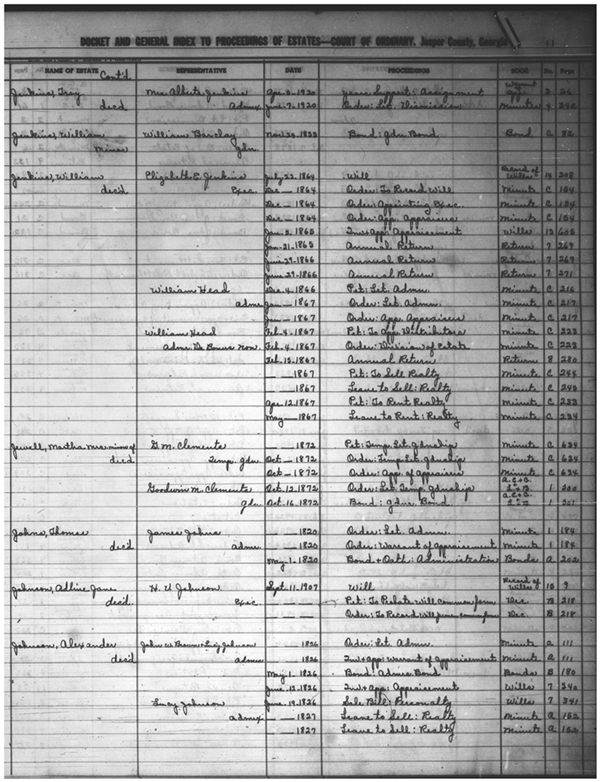 DOCKET AND GENERAL INDEX TO PROCEEDINGS OF ESTATES—COURT OF ORDINARY, Jasper County, Georgia
NAME OF ESTATE Cont'd REPRESENTATIVE DATE PROCEEDINGS BOOK No. PAGE
Jenkins, Troy Mrs. Alberta Jenkins 1920 years Support: Assignment 26
dec'd Admx June 7, 1920 Order: Let. Dismission Minutes
Jenkins, William William Barclay Nov. 30, 1833 Bond: Gdn. Bond Bond C 82
minor Gdn.
Jenkins, William Elizabeth E. Jenkins July 22, 1864 Will Record of Wills 208
dec'd Exec. Dec — 1864 Order: To Record Will Minute C 154
Dec — 1864 Order: Appointing Exec. Minute C 154
Dec — 1864 Order: App. Appraisers Minute C 154
Jan. 1865 Inv & App: Appraisement Wills 605
Jan. 21, 1865 Annual Return Return 7 269
1866 Annual Return Return 7 269
June 29, 1866 Annual Return Return 7 271
William Head Dec. 4, 1866 Pet: Let. Admn. Minute C 216
adm. Jan — 1867 Order: Let. Admn. Minute C 217
Jan — 1867 Order: App. Appraisers Minute C 217
William Head Feb. 4, 1867 Pet: To App. Distributors Minute C 223
Adm. De Bonis Non. Feb. 4, 1867 Order: Division of Estate Minute C 223
Feb. 15, 1867 Annual Return Return 8 280
— — 1867 Pet: To Sell Realty Minute C 244
1867 Leave to Sell: Realty Minute C 243
1867 Pet: To Rent Realty Minute C 233
May — 1867 Leave to Rent: Realty Minute C 234
Jewell, Martha minor of G. M. Clements — — 1872 Pet: Temp. Let. Gdnship Minute C 634
dec'd Temp. Gdn Oct — 1872 Order: Temp. Let. Gdnship Minute C 634
Oct — 1872 Order: App. of Appraisers Minute C 634
Goodwin M. Clements Oct. 12, 1872 Order: Let. Temp. Gdnship 1 200
Gdn Oct. 16, 1872 Bond: Gdn. Bond 1 201
Johns, Thomas James Johns — — 1820 Order: Let. Admn. Minute 1 184
dec'd adm. — — 1820 Order: Warrant of appraisement Minute 1 184
May 1, 1820 Bond & Oath: Administration Bonds A 202
Johnson, Adline Jane H. U Johnson Sept. 11, 1907 Will Record of Wills 9
dec'd Exec. — — — Pet: To Probate Will Common form Dec. B 218
— — — Order: To Record Will form Dec B 218
Johnson, Alexander John W. Brown & Lucy Johnson — — 1826 Order: Let. Admn. Minute A 111
dec'd adm — — 1826 Inv & App: Warrant of Appraisement Minute A 111
May 1, 1826 Bond: Admrs. Bond Bonds B 180
June 12, 1826 Inv & App: Appraisement Wills 7 340
Lucy Johnson June 19, 1826 Sale Bill: Personalty Wills 7 341
admx. — — 1827 Leave to Sell: Realty Minute A 152
— — 1827 Leave to Sell: Realty Minute A 152